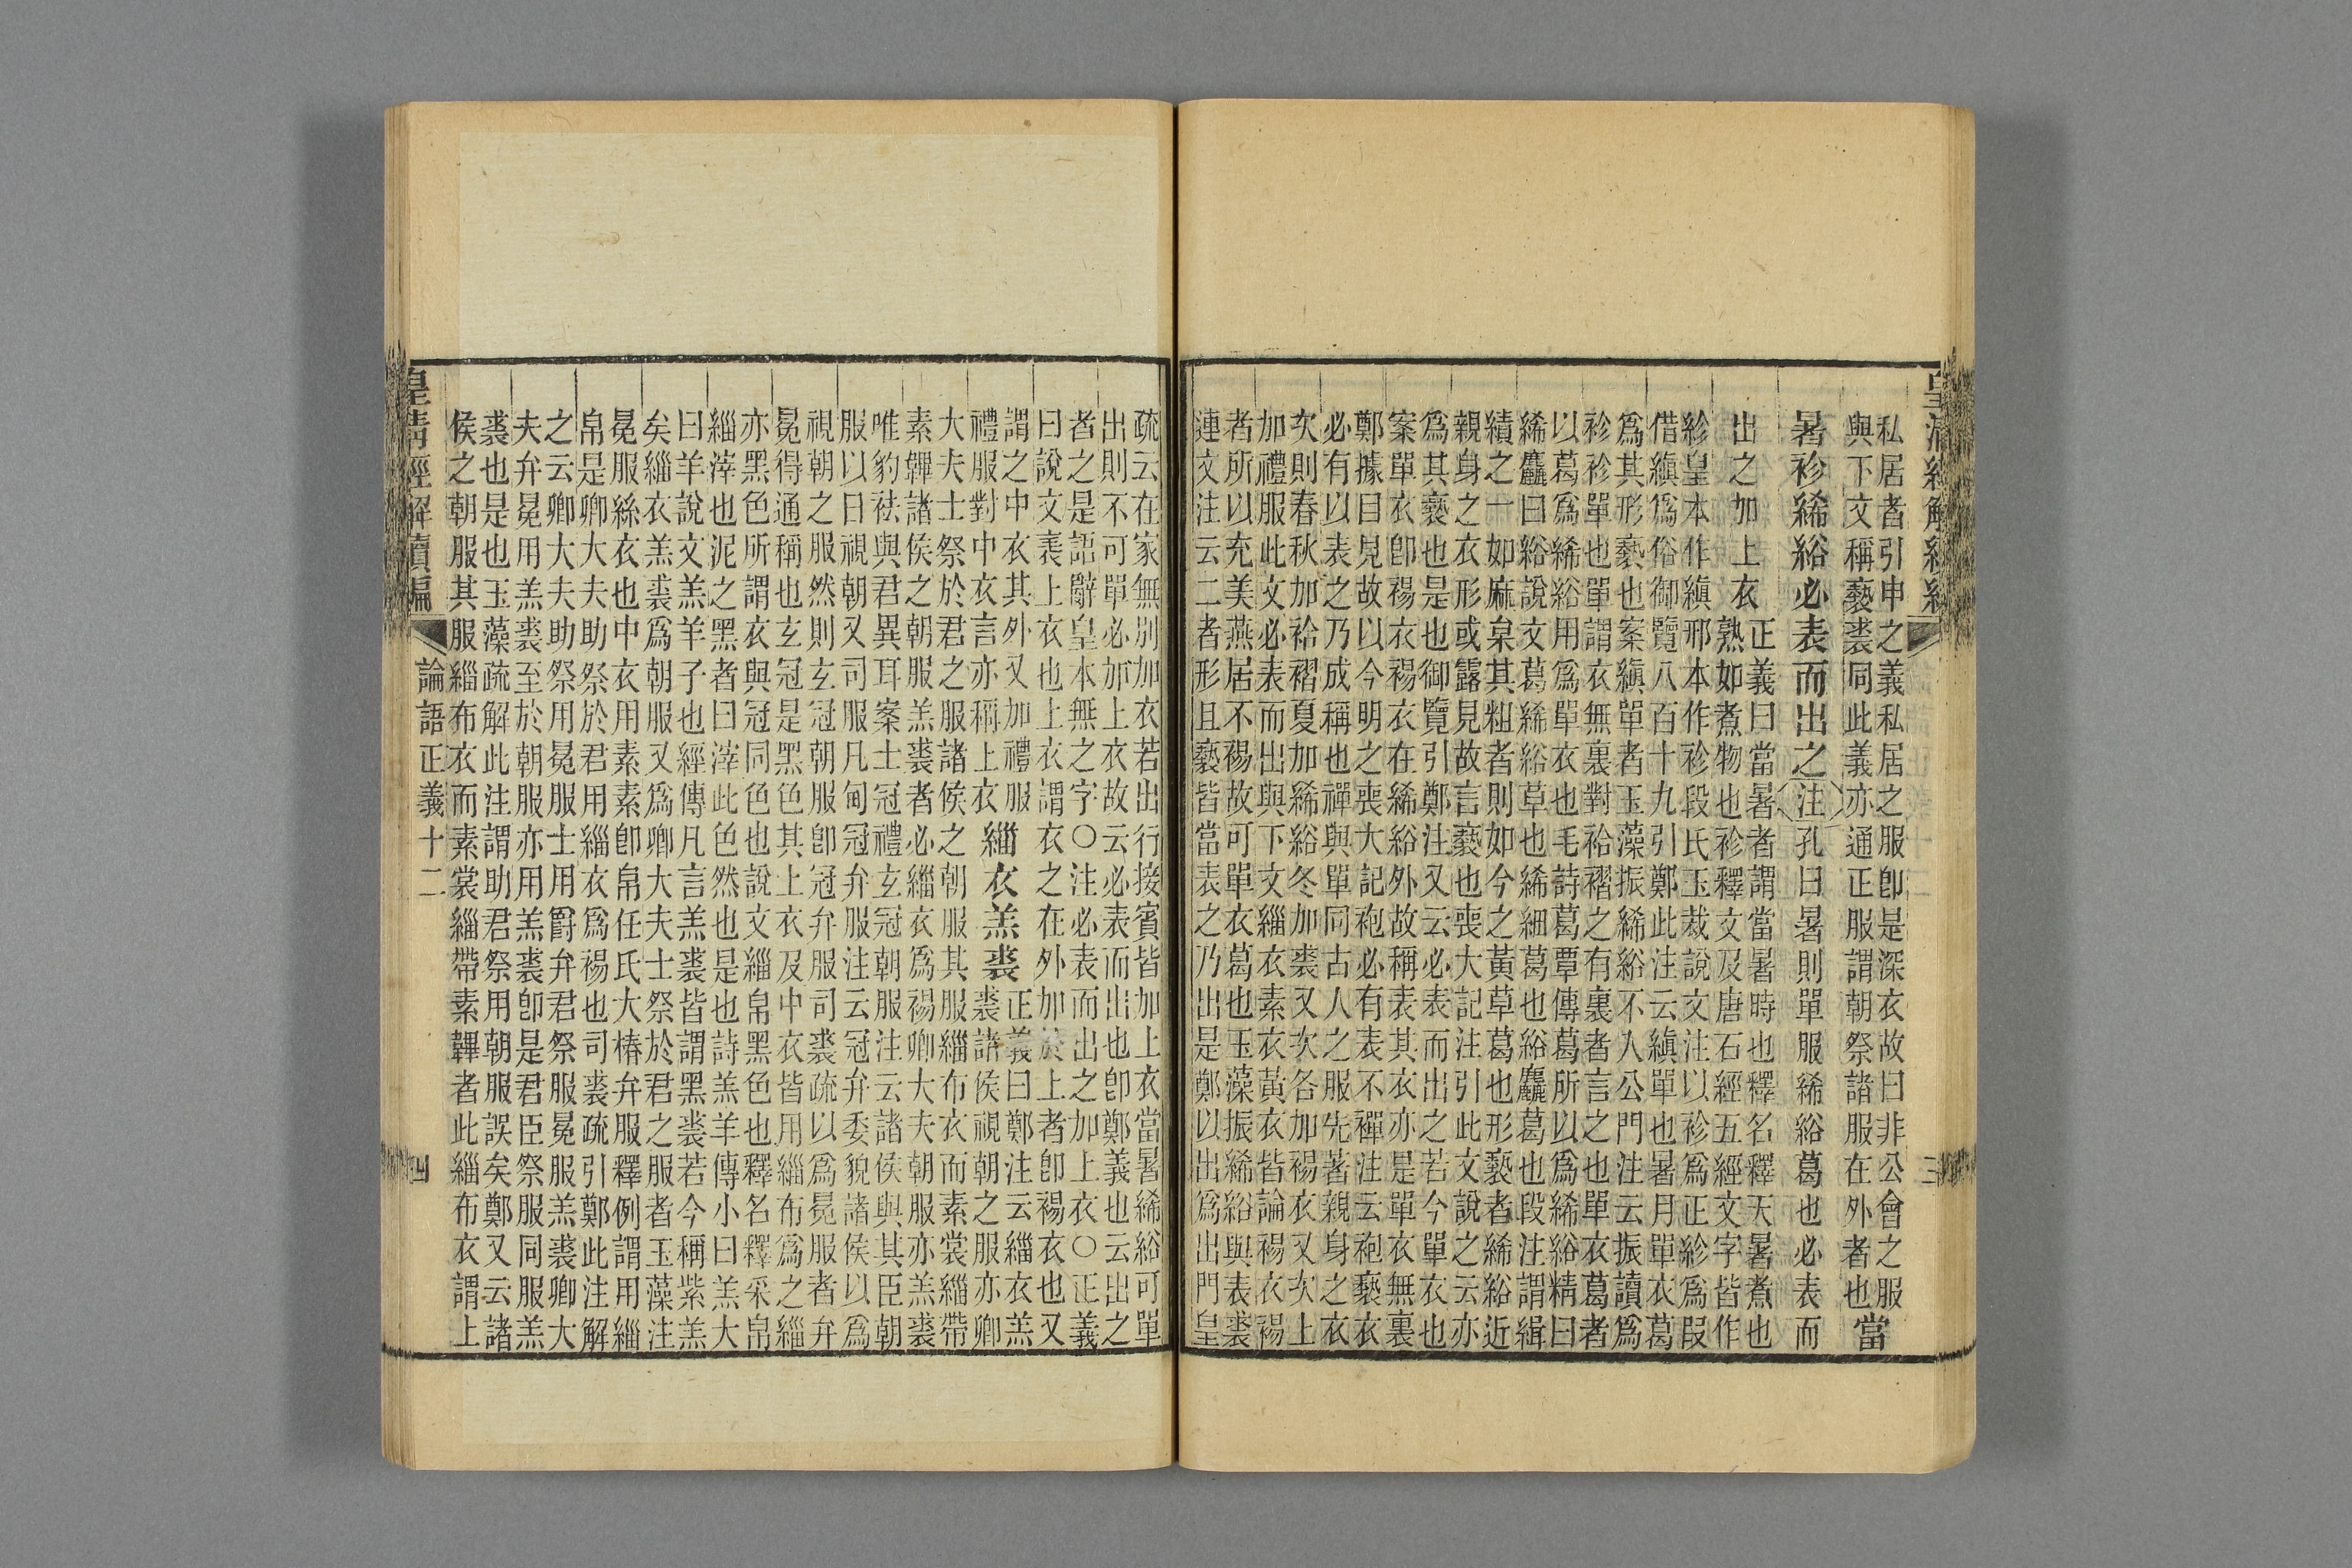 私居者引申之義私居之服卽是深衣故曰非公會之服
與下文稱褻裘同此義亦通正服謂朝祭諸服在外者也
當
暑袗絺綌必表而出之注孔曰暑則單服絺綌葛也必表而
出之加上衣
正義曰當暑者謂當暑時也釋名釋天暑煮也
熱如煮物也袗釋文及唐石經五經文字皆作
紾皇本作縝邢本作袗段氏玉裁說文注以袗爲正紾爲叚
借縝爲俗御覽八百十九引鄭此注云縝單也暑月單衣葛
爲其形褻也案縝單者玉藻振絺綌不入公門注云振讀爲
袗袗單也單謂衣無裏對袷褶之有裏者言之也單衣葛者
以葛爲絺綌用爲單衣也毛詩葛覃傳葛所以爲絺綌精曰
絺麤曰綌說文葛絺綌草也絺細葛也綌麤葛也段注謂緝
績之一如麻枲其粗者則如今之黃草葛也形褻者絺綌近
親身之衣形或露見故言褻也喪大記注引此文說之云亦
爲其褻也是也御覽引鄭注又云必表而出之若今單衣也
案單衣卽裼衣裼衣在絺綌外故稱表其衣亦是單衣無裏
鄭據目見故以今明之喪大記袍必有表不襌注云袍褻衣
必有以表之乃成稱也襌與單同古人之服先著親身之衣
次則春秋加袷褶夏加絺綌冬加裘又次各加裼衣又次上
加禮服此文必表而出與下文緇衣素衣黃衣皆論裼衣裼
者所以充美燕居不裼故可單衣葛也玉藻振絺綌與表裘
連文注云二者形且褻皆當表之乃出是鄭以出爲出門皇
疏云在家無別加衣若出行接賓皆加上衣當暑絺綌可單
出則不可單必加上衣故云必表而出也卽鄭義也云出之
者之是語辭皇本無之字○注必表而出之加上衣○正義
曰說文表上衣也上衣謂衣之在外加於上者卽裼衣也又
謂之中衣其外又加禮服
禮服對中衣言亦稱上衣
緇衣羔裘
正義曰鄭注云緇衣羔
裘諸侯視朝之服亦卿
大夫士祭於君之服諸侯之朝服其服緇布衣而素裳緇帶
素韠諸侯之朝服羔裘者必緇衣爲裼卿大夫朝服亦羔裘
唯豹袪與君異耳案士冠禮玄冠朝服注云諸侯與其臣朝
服以日視朝又司服凡甸冠弁服注云冠弁委貌諸侯以爲
視朝之服然則玄冠朝服卽冠弁服司裘疏以爲冕服者弁
冕得通稱也玄冠是黑色其上衣及中衣皆用緇布爲之緇
亦黑色所謂衣與冠同色也說文緇帛黑色也釋名釋采帛
緇滓也泥之黑者曰滓此色然也是也詩羔羊傳小曰羔大
曰羊說文羔羊子也經傳凡言羔裘皆謂黑裘若今稱紫羔
矣緇衣羔裘爲朝服又爲卿大夫士祭於君之服者玉藻注
冕服絲衣也中衣用素素卽帛任氏大椿弁服釋例謂用緇
帛是卿大夫助祭於君用緇衣爲裼也司裘疏引鄭此注解
之云卿大夫助祭用冕服士用爵弁君祭服冕服羔裘卿大
夫弁冕用羔裘至於朝服亦用羔裘卽是君臣祭服同服羔
裘也是也玉藻疏解此注謂助君祭用朝服誤矣鄭又云諸
侯之朝服其服緇布衣而素裳緇帶素韠者此緇布衣謂上
論語正義十二
三
四